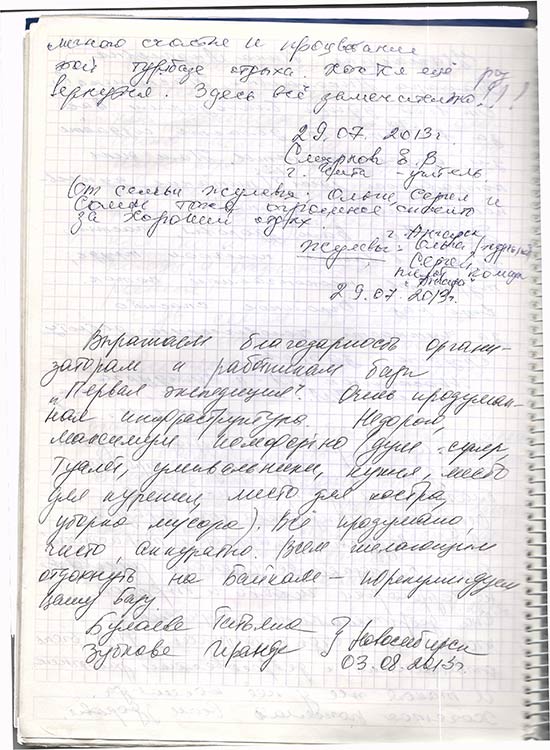 личного счастья и процветания
этой турбазе отдыха. Хотя ещё раз
вернуться. Здесь всё замечательно!!!
29.07.2013г.
Смирнов Е.В.
г. Чита - учитель
От семьи Жулевы: Ольги, Сергея и
тоже огромное спасибо
за хороший отдых.
г. Ангарск
Жулевы: Ольга
Сергей
"Ангара"
29.07.2013г.
Выражаем благодарность органи-
заторам и работникам базы
"Первая экспедиция". Очень продуман-
ная инфраструктура. Недорого,
максимум комфортно душ - супер,
туалет, умывальники, кухня, место
для курения, место для костра,
уборка мусора). Всё продумано,
чисто, аккуратно. Всем желающим
отдохнуть на Байкале - порекомендуем
Вашу базу.
Булаева Татьяна
Зубкова } г. Новосибирск
03.08.2013г.